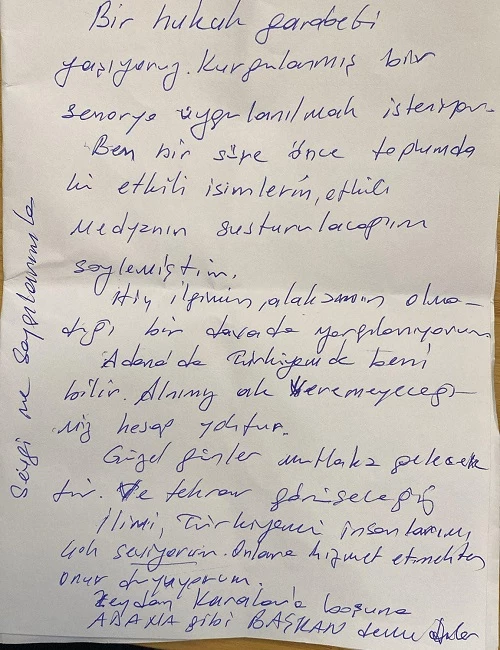 Bir hukuk garabeti
yaşıyoruz. Kurgulanmış bir
senoryo uygulanılmak isteniyor.
Ben bir süre önce toplumda
ki etkili isimlerin, etkili
medyanın susturulacağını
söylemiştim.
Hiç ilgimin, alakamın olma-
dığı bir davada yargılanıyorum.
Adana'da Türkiyem'de beni
bilir. Alnımız ak veremeyeceği-
miz hesap yoktur.
Güzel günler mutlaka gelecek
tir. Ve tekrar görüşeceğiz
İlimi, Türkiyemi insanlarımı
çok seviyorum. Onlara hizmet etmekten
onur duyuyorum.
Zeydan Karalar'a boşuna
ADANA gibi BAŞKAN demediler
Sevgi ve Saygılarımla